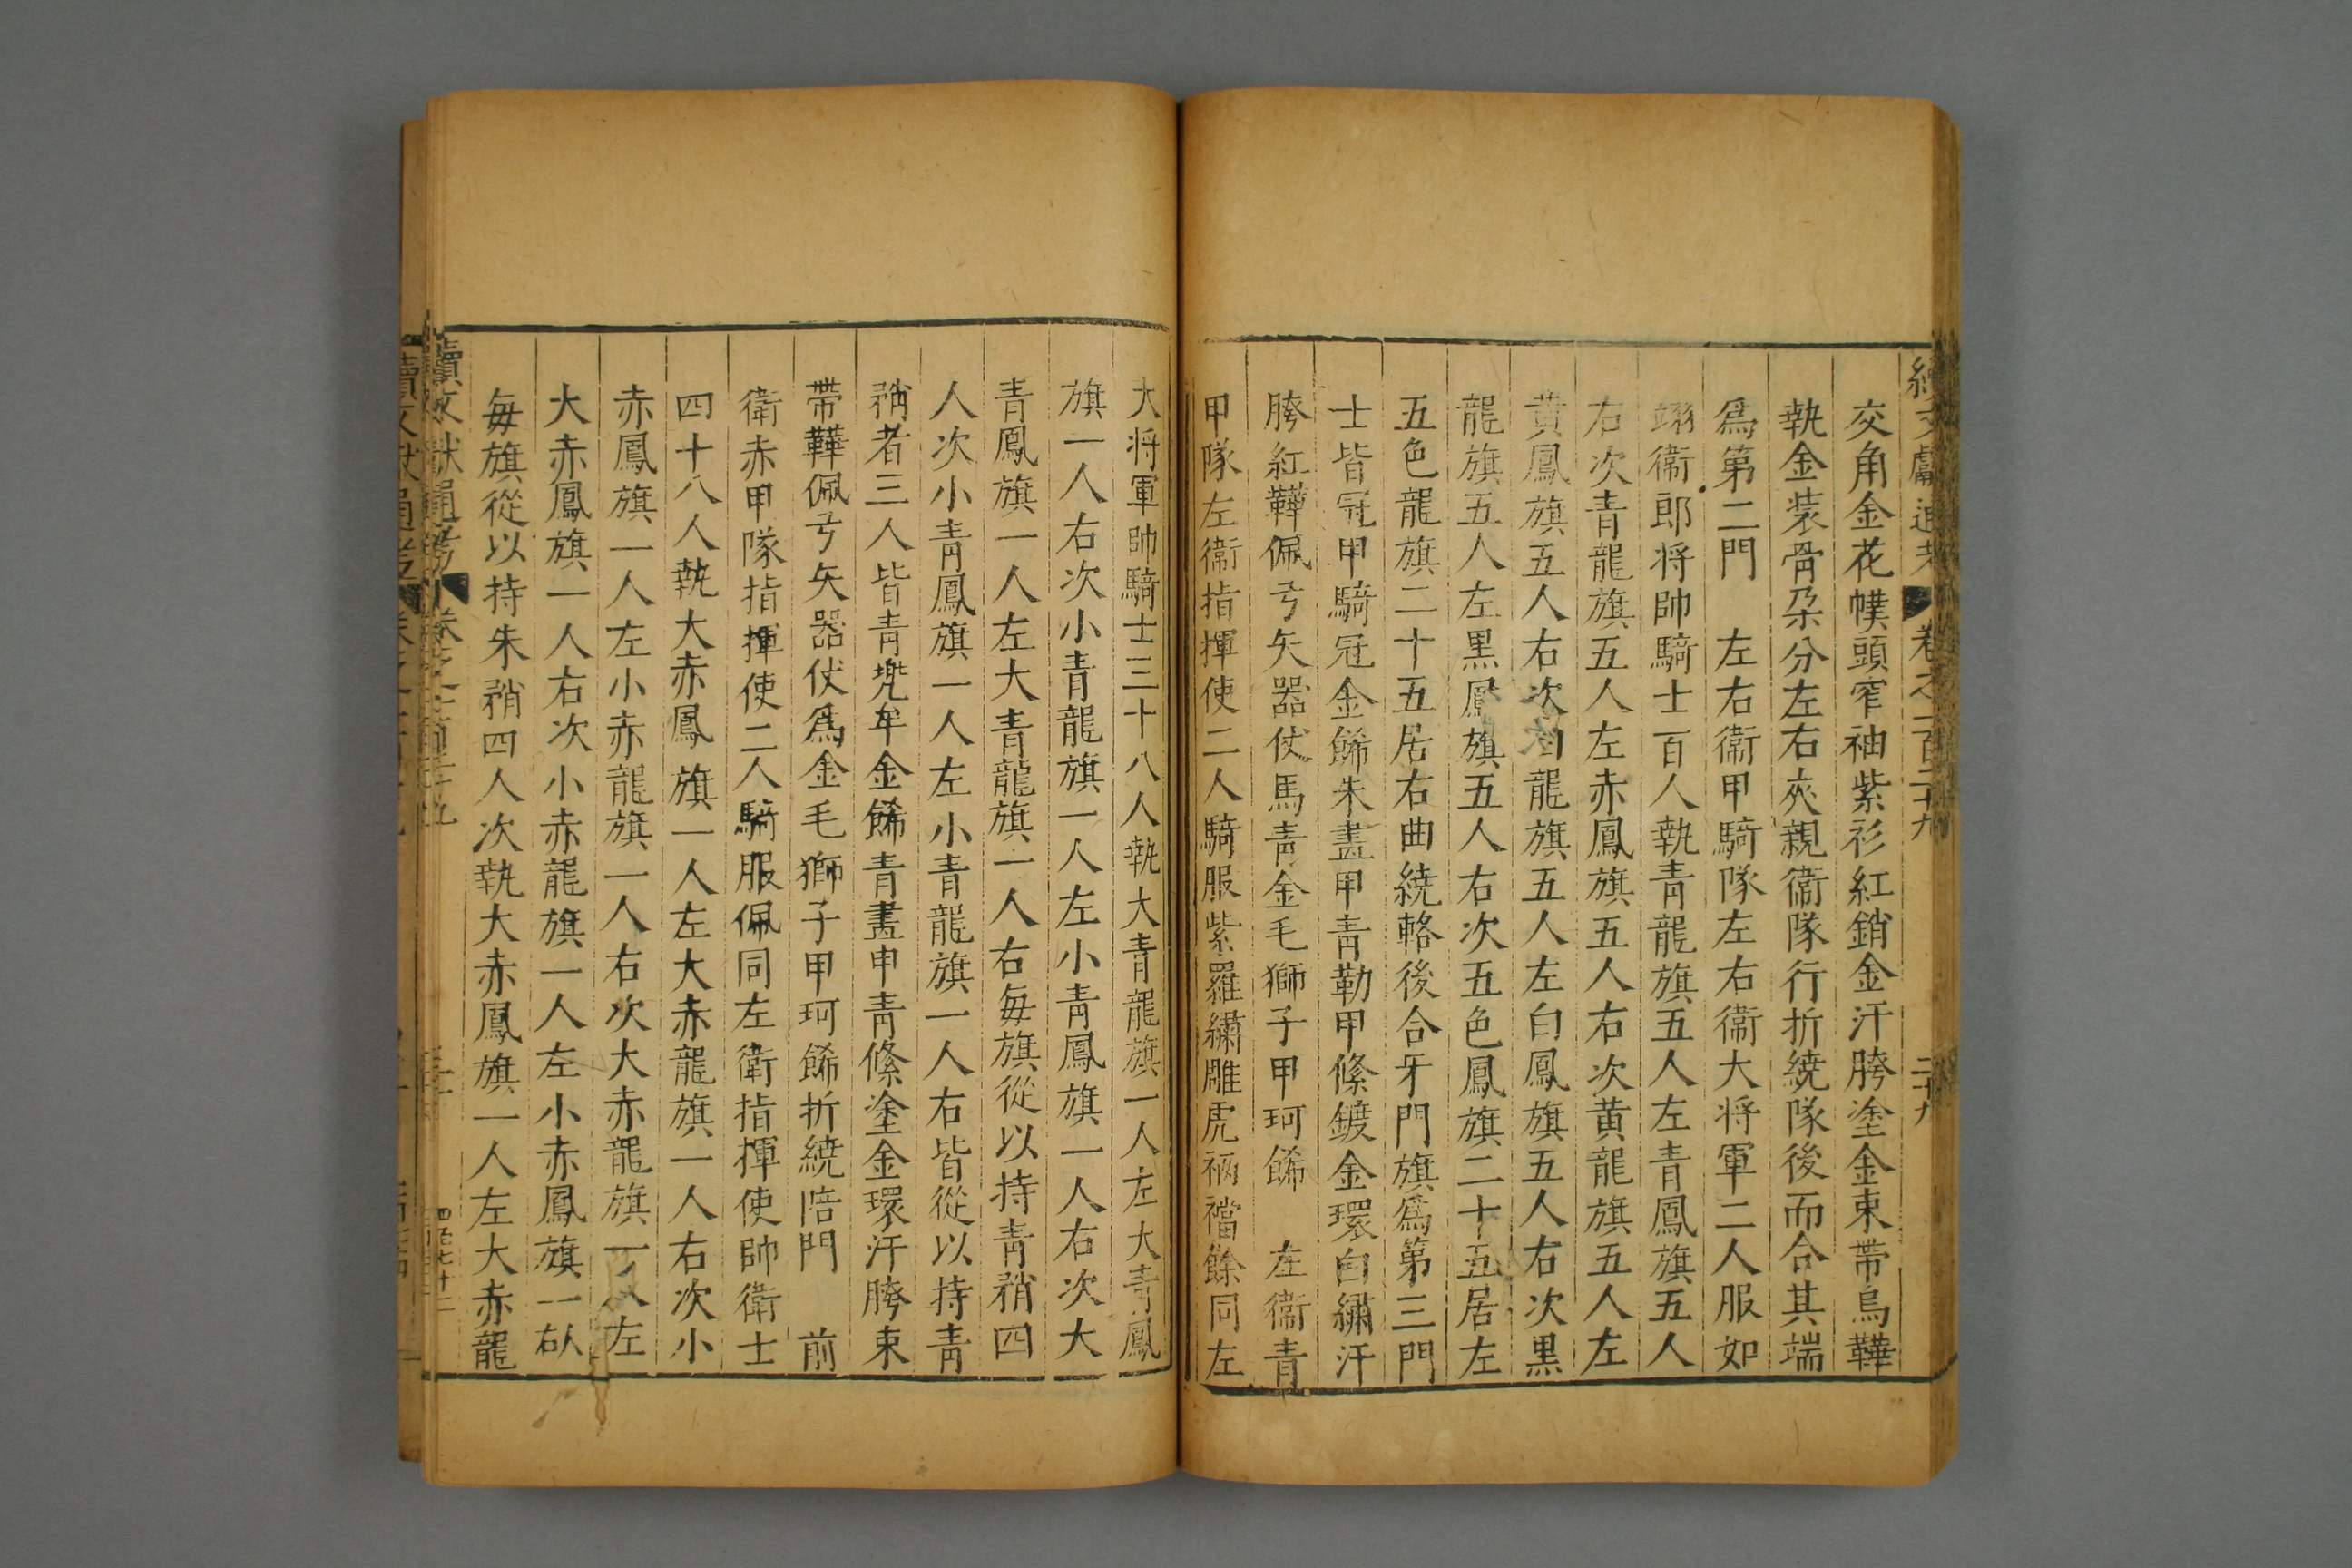 交角金花幞頭窄袖紫衫紅銷金汗胯塗金束帶烏鞾
執金装骨朶分左右夾親衞隊行折繞隊後而合其端
爲第二門　左右衞甲騎隊左右衞大将軍二人服如
翊衞郎将帥騎士百人執青龍旗五人左青鳳旗五人
右次青龍旗五人左赤鳳旗五人右次黄龍旗五人左
黄鳳旗五人右次白龍旗五人左白鳳旗五人右次黒
龍旗五人左黒鳳旗五人右次五色鳳旗二十五居左
五色龍旗二十五居右曲繞輅後合牙門旗爲第三門
士皆冠甲騎冠金餙朱畫甲青勒甲絛鍍金環白繡汗
胯紅鞾佩弓矢器仗馬青金毛獅子甲珂餙　左衞青
甲隊左衞指揮使二人騎服紫羅繡雕虎裲襠餘同左
大将軍帥騎士三十八人執大青龍旗一人左大青鳳
旗一人右次小青龍旗一人左小青鳳旗一人右次大
青鳳旗一人左大青龍旗一人右毎旗從以持青矟四
人次小青鳳旗一人左小青龍旗一人右皆從以持青
矟者三人皆青兠牟金餙青畫甲青絛塗金環汗胯束
帶鞾佩弓矢器仗馬金毛獅子甲珂餙折繞陪門　前
衛赤甲隊指揮使二人騎服佩同左衛指揮使帥衛士
四十八人執大赤鳳旗一人左大赤龍旗一人右次小
赤鳳旗一人左小赤龍旗一人右次大赤龍旗一人左
大赤鳳旗一人右次小赤龍旗一人左小赤鳳旗一人右
毎旗從以持朱矟四人次執大赤鳳旗一人左大赤龍
續文獻通考
卷之一百二十九
二十九